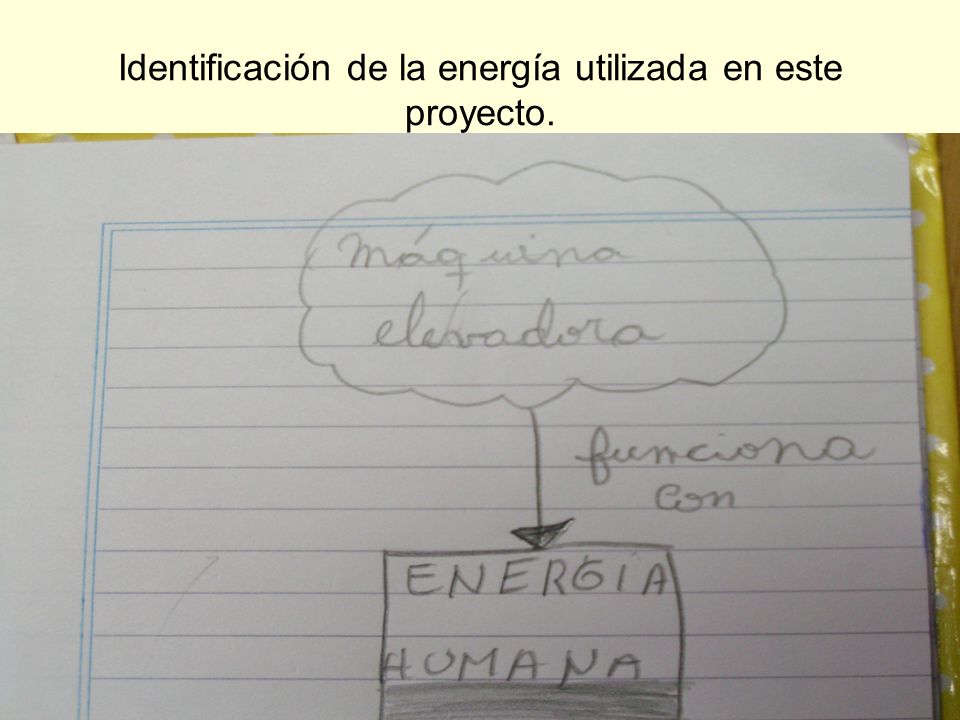 Identificación de la energía utilizada en este
proyecto.
máquina
elevadora
funciona
con
ENERGÍA
HUMANA